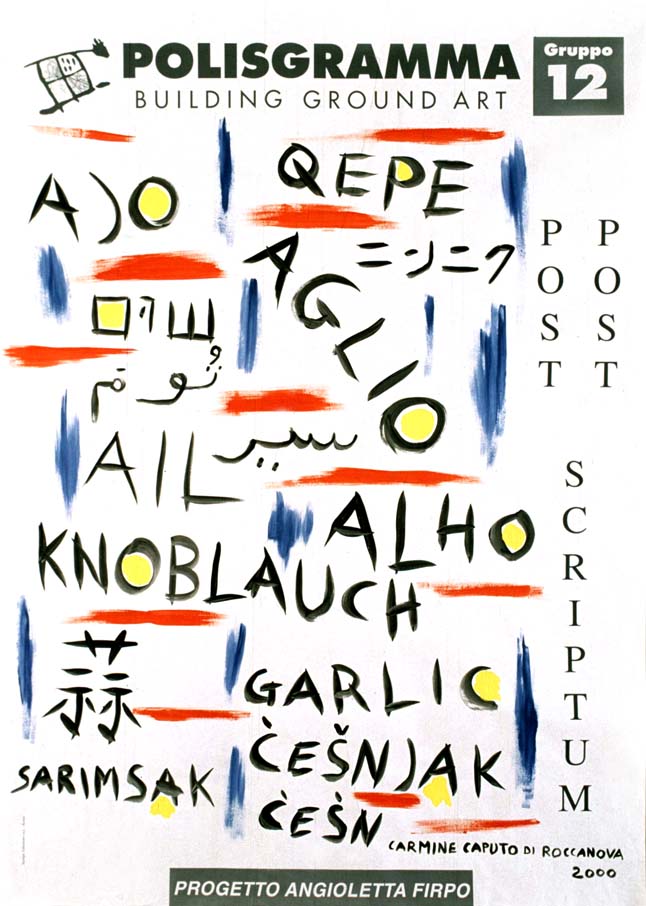 POLISGRAMMA
BUILDING GROUND ART
Gruppo
12
AJO
QEPE
AGLIO
ニンニク
שום
ثوم
AIL
سير
ALHO
KNOBLAUCH
蒜
GARLIC
ČEŠNJAK
SARIMSAK
ČEŠN
POST
POST
SCRIPTUM
CARMINE CAPUTO DI ROCCANOVA
2000
PROGETTO ANGIOLETTA FIRPO